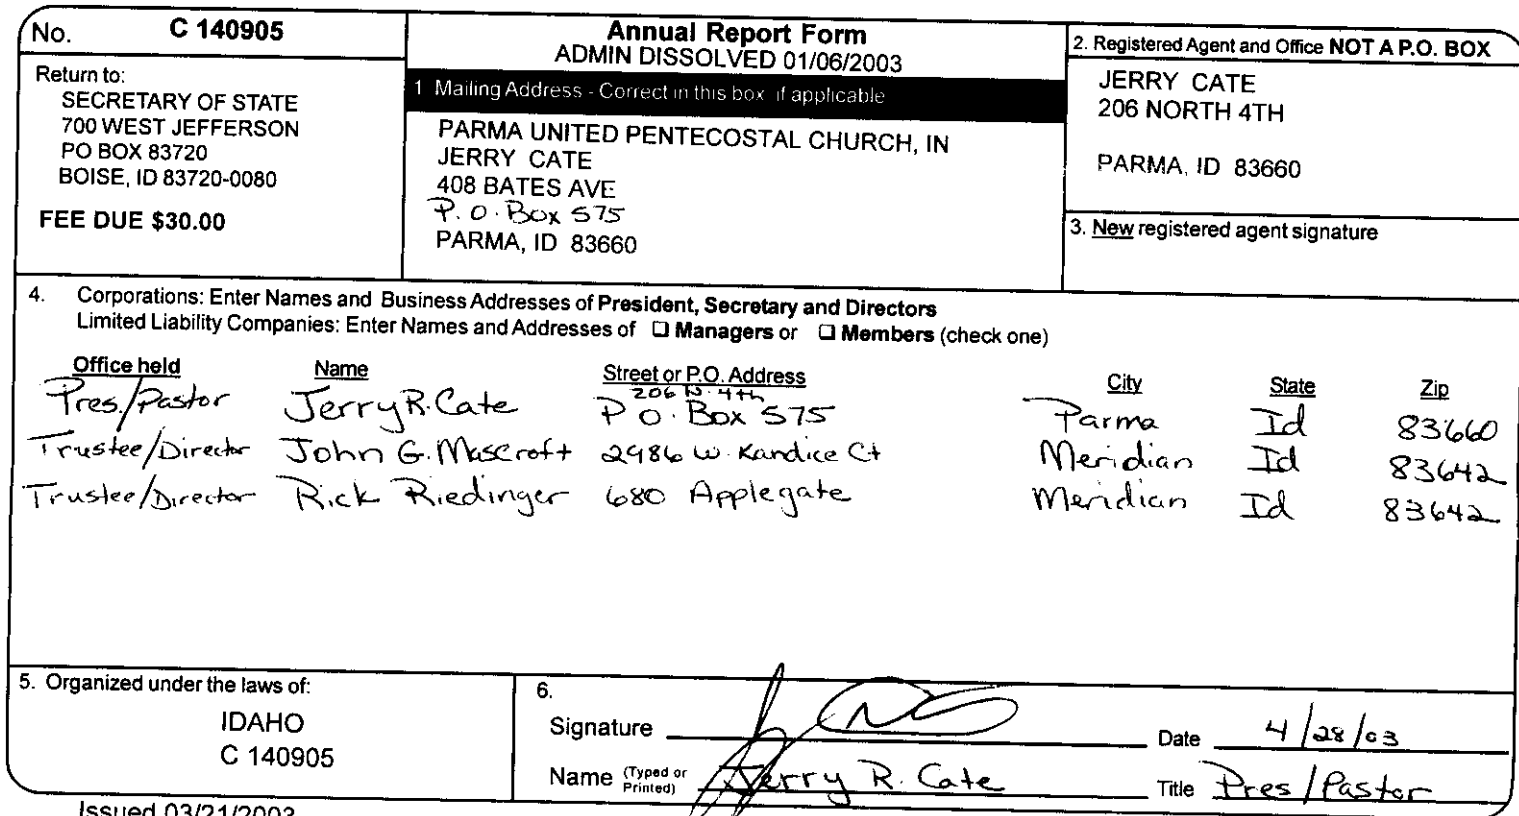 No. C 140905
Return to:
SECRETARY OF STATE
700 WEST JEFFERSON
PO BOX 83720
BOISE, ID 83720-0080
FEE DUE $30.00
Annual Report Form
ADMIN DISSOLVED 01/06/2003
1 Mailing Address - Correct in this box if applicable
PARMA UNITED PENTECOSTAL CHURCH, IN
JERRY CATE
408 BATES AVE
P.O. Box 575
PARMA, ID 83660
2. Registered Agent and Office NOT A P.O. BOX
JERRY CATE
206 NORTH 4TH
PARMA, ID 83660
3. New registered agent signature
4. Corporations: Enter Names and Business Addresses of President, Secretary and Directors
Limited Liability Companies: Enter Names and Addresses of ❑ Managers or ❑ Members (check one)
Office held Name Street or P.O. Address City State Zip
206 N. 4th
Pres./Pastor Jerry R. Cate P O. Box 575 Parma Id 83660
Trustee/Director John G. Mascroft 2986 W. Kandice Ct Meridian Id 83642
Trustee/Director Rick Riedinger 680 Applegate Meridian Id 83642
5. Organized under the laws of:
IDAHO
C 140905
6.
Signature Date 4/28/03
Name (Typed or Printed) Jerry R. Cate Title Pres/Pastor
Issued 03/21/2003